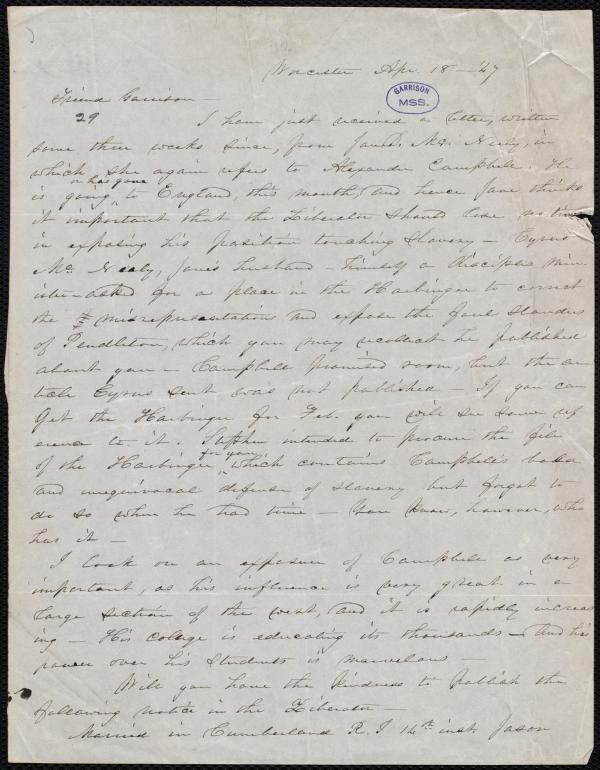 Worcester Apr. 18 – '47
GARRISON
MSS.
Friend Garrison –
29
I have just received a letter, written
some three weeks since, from Jane D. Mc. Neely, in
which she again refers to Alexander Campbell. He
or has gone
is going to England, this month, and hence Jane thinks
it important that the Liberator should lose no time
in exposing his position touching Slavery – Cyrus
Mc. Neely, Jane's husband – himself a Disciple min
ister – asked for a place in the Harbinger to correct
the misrepresentations and expose the foul slanders
of Pendleton, which you may recollect he published
about you – Campbell promised room, but the ar
ticle Cyrus sent was not published – If you can
Get the Harbinger for Feb. you will see some ref
erence to it. Stephen intended to procure the file
for you,
of the Harbinger which contains Campbell's bold
and unequivocal defense of slavery but forgot to
do so when he had time – You know, however, who
has it –
I look on an exposure of Campbell as very
important, as his influence is very great in a
large section of the west, and it is rapidly increas
ing – His colege is educating its thousands – and his
power over his Students is marvelous –
Will you have the kindness to publish the
following notice in the Liberator –
Married in Cumberland R. I 14th inst. Jason